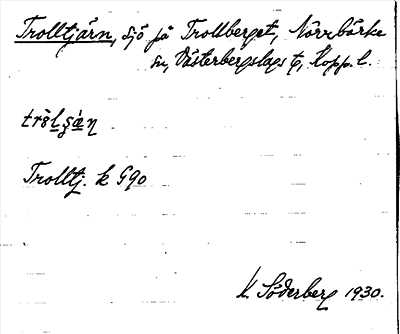 Trolltjärn, sjö på Trollberget, Norrbärke
sn, Västerbergslags tg, Kopp. l.
Trolltj. k G90
K. Söderberg 1930.